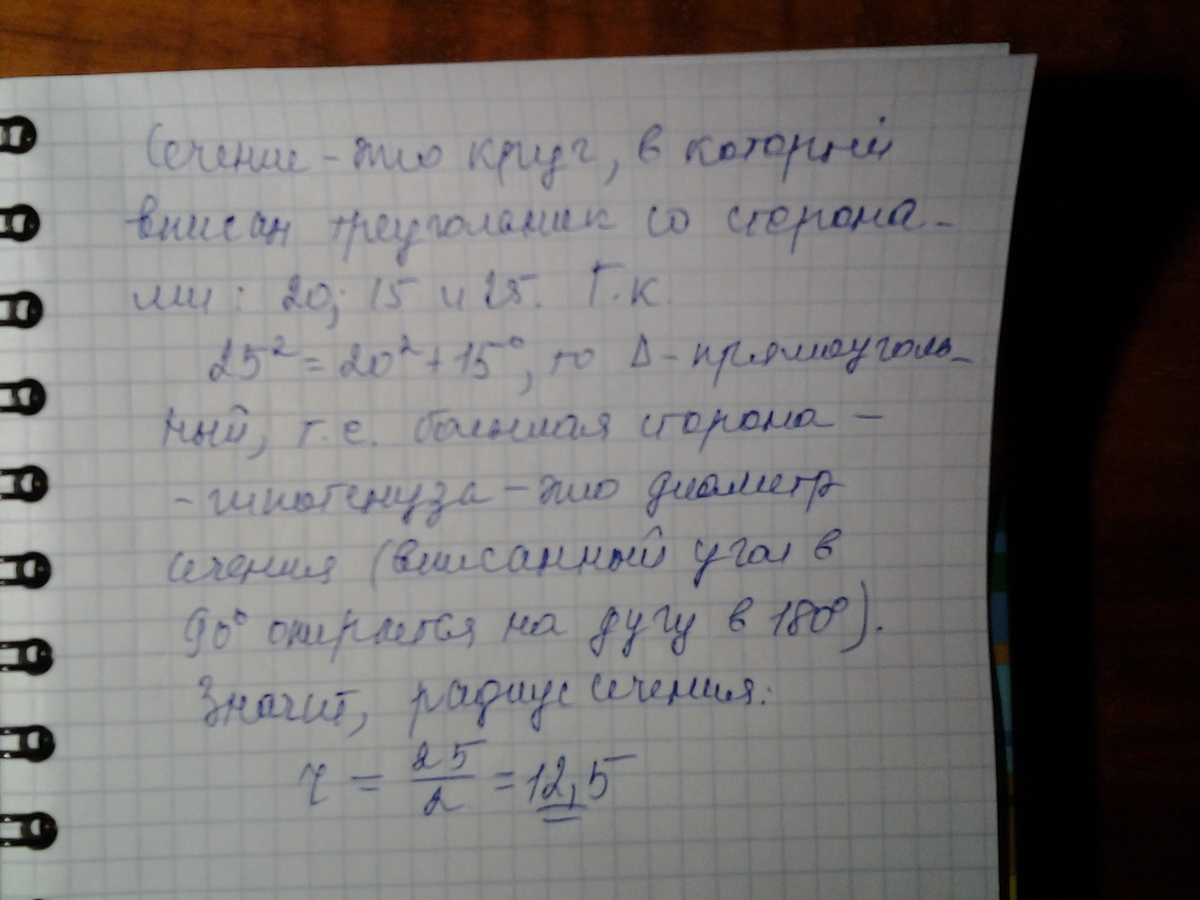 Сечение - это круг, в который
вписан треугольник со сторона-
ми: 20; 15 и 25. Т.к.
25² = 20² + 15², то Δ - прямоуголь-
ный, т.е. большая сторона -
- гипотенуза - это диаметр
сечения (вписанный угол в
90° опирается на дугу в 180°).
Значит, радиус сечения:
r = 25/2 = 12,5